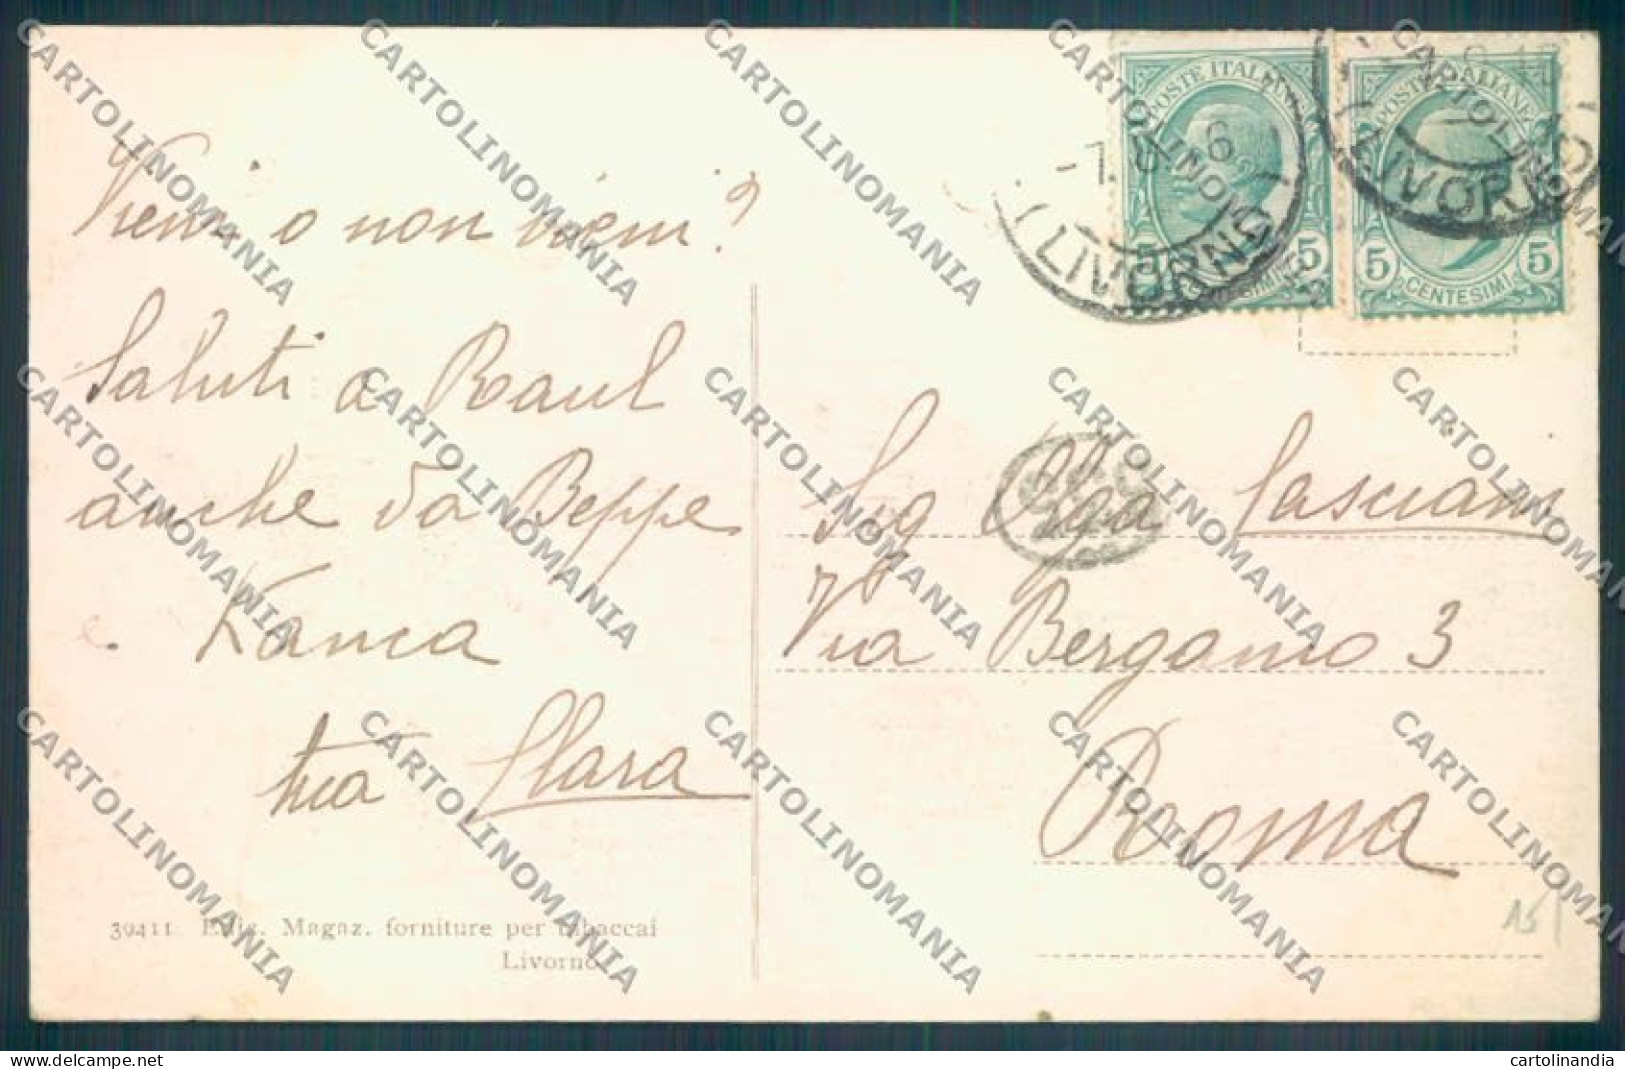 POSTE ITALIANE
POSTE ITALIANE
5 CENTESIMI 5
5 CENTESIMI 5
LIVORNO
LIVORNO
Vieni o non vieni?
Saluti a Raul
anche da Beppe
e
tua Clara
Sig Olga
Via Bergamo 3
Roma
15
39411 Ediz. Magaz. forniture per tabaccai
Livorno
CARTOLINOMANIA
cartolinandia